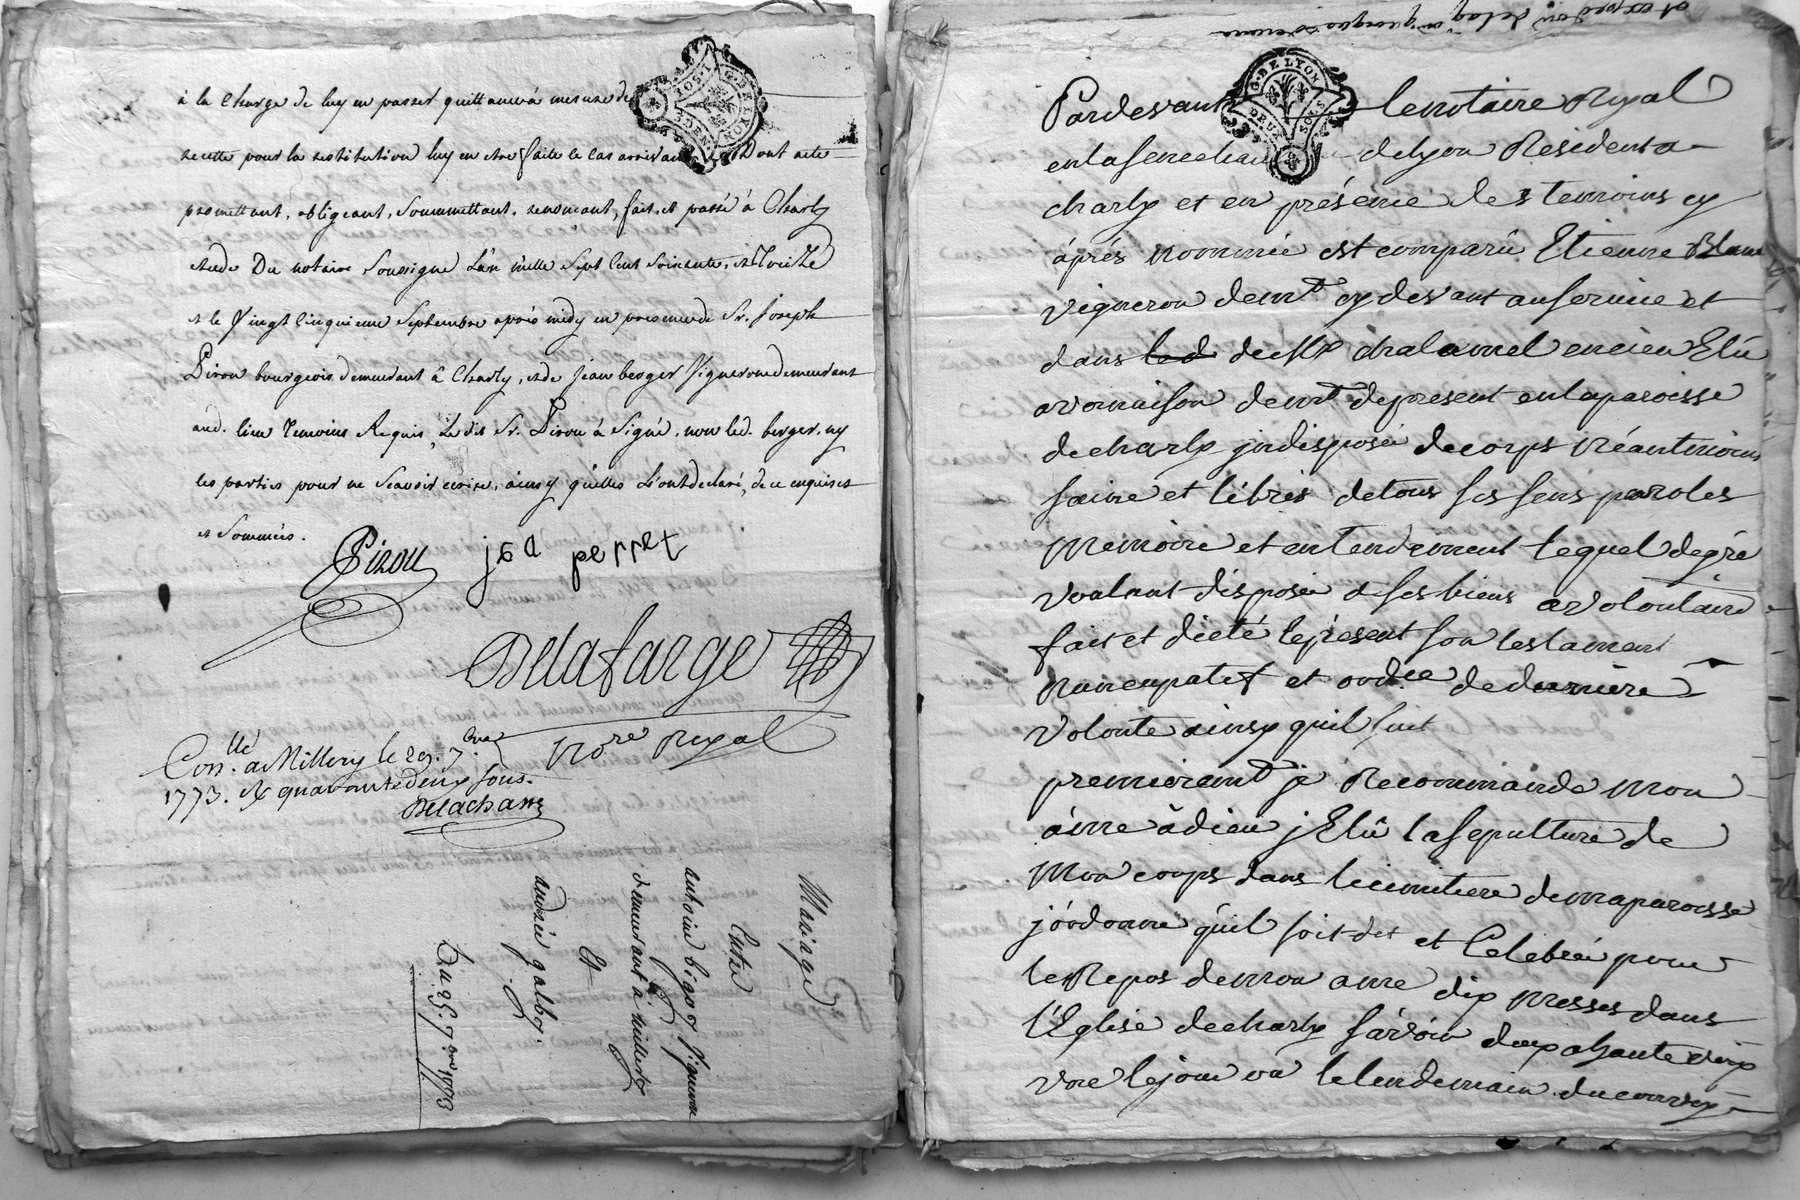 à la Charge de luy en passer quittance à mesure de
recette pour la restitution luy en etre faite le cas arrivant Dont acte
promettant, obligeant, Soummettant, renoncant, fait et passé à Charly
etude Du notaire Soussigné L'an mille Sept Cent Soixante, et Treize
et le Vingt Cinquieme Septembre après midy en presence de Sr. Joseph
Pirou bourgeois demeurant à Charly, et de Jean berger Vigneron demeurant
aud. lieu Temoins Requis, Le dit Sr. Pirou à Signé, non led. berger, ny
les parties pour ne Scavoir écrire, ainsy quelles L'ont declaré, de ce enquises
et Sommées.
Pirou
perret
Delafarge
Nore Royal
Con.llé a Millery le 29. 7.bre
1773. R quarante deux sous.
Delachan
Mariage
Entre
anthoine bigot Vigneron
demeurant à millery
Et
andrée galbot.
Du 25. 7.bre 1773
G. DE LYON
DEUX SOLS
Pardevant le notaire Royal
en la senechau de Lyon Résident a
charly et en présence des temoins cy
àprés nommée est comparû Etienne Blanc
vigneron demt cydevant au service et
dans led de Mr chalamel encien Elû
a vornaison demt de present en la paroisse
de charly jndisposée de corps néantmoins
saine et libres de tous ses sens paroles
Memoire et entendement lequel degré
voulant disposée d ses biens a volontaire
fait et dicté le présent son testament
Nuncupatif et ordce de derniere
volonte ainsy quil suit
premierement je Recommande Mon
âme à dieu j Elû la sepulture de
Mon corps dans le cimitiere de ma paroisse
j'ordonne qu'il soit dit et Celebrée pour
le Repos de mon ame dix Messes dans
l'Eglise de charly sávoir deux a haute
voix le jour où le lendemain du